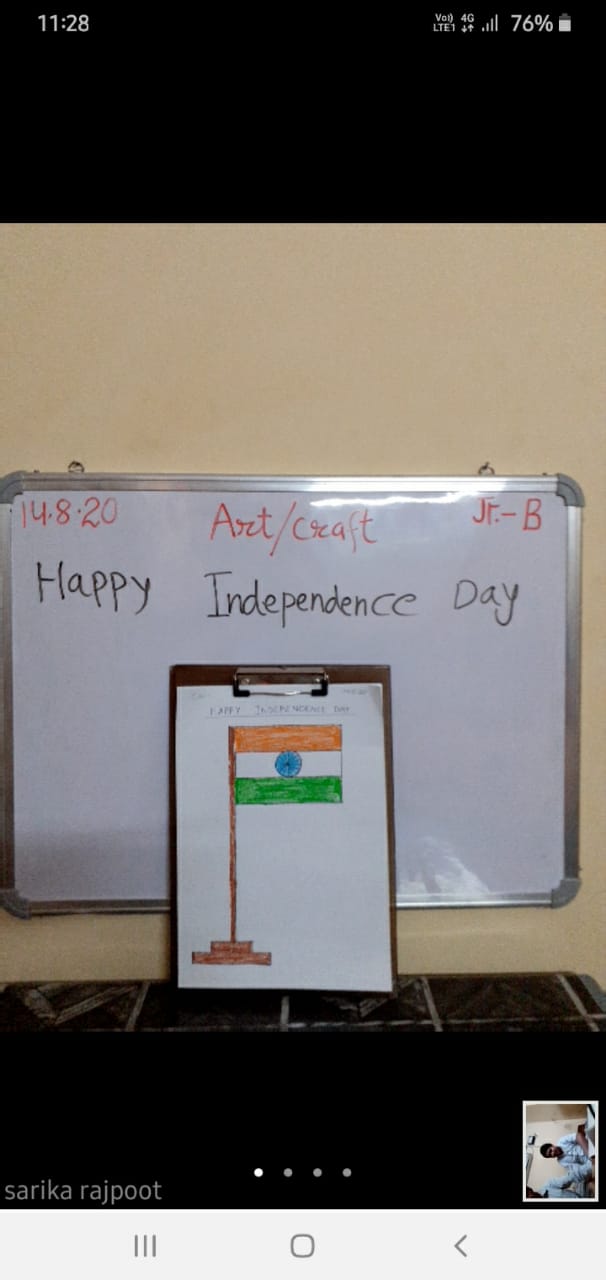 11:28 Vo)) LTE1 4G 76%
14.8.20 Art/craft Jr.-B
Happy Independence Day
HAPPY INDEPENDENCE DAY
sarika rajpoot